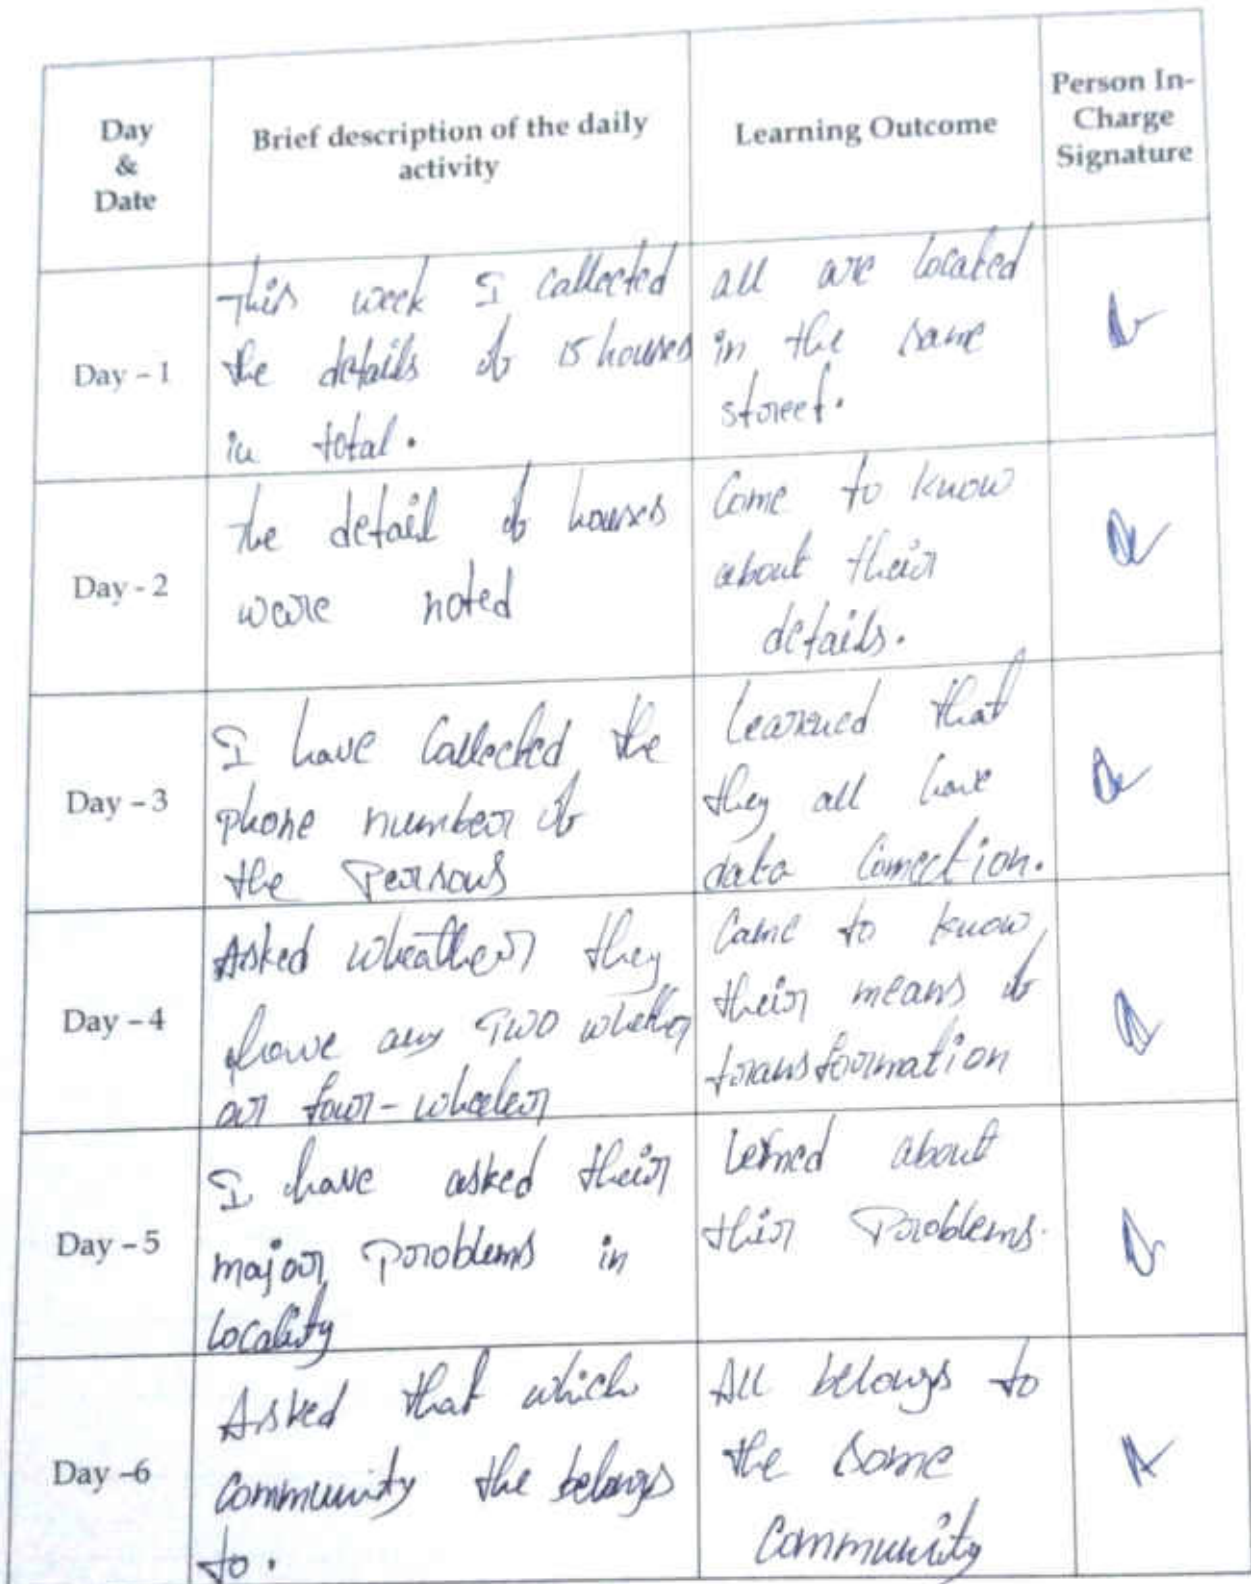 Day
&
Date
Brief description of the daily
activity
Learning Outcome
Person In-
Charge
Signature
Day - 1
This week I collected
the details of 15 houses
in total.
all are located
in the same
street.
Day - 2
the detail of houses
weare noted
Come to know
about their
details.
Day - 3
I have Collected the
phone number of
the Persons
Learned that
they all have
data Connection.
Day - 4
Asked wheather they
have any Two whether
or four-wheeler
Came to know
their means of
transformation
Day - 5
I have asked their
major problems in
locality
Lerned about
thir Problems.
Day -6
Asked that which
Community the belongs
to.
All belongs to
the same
Community